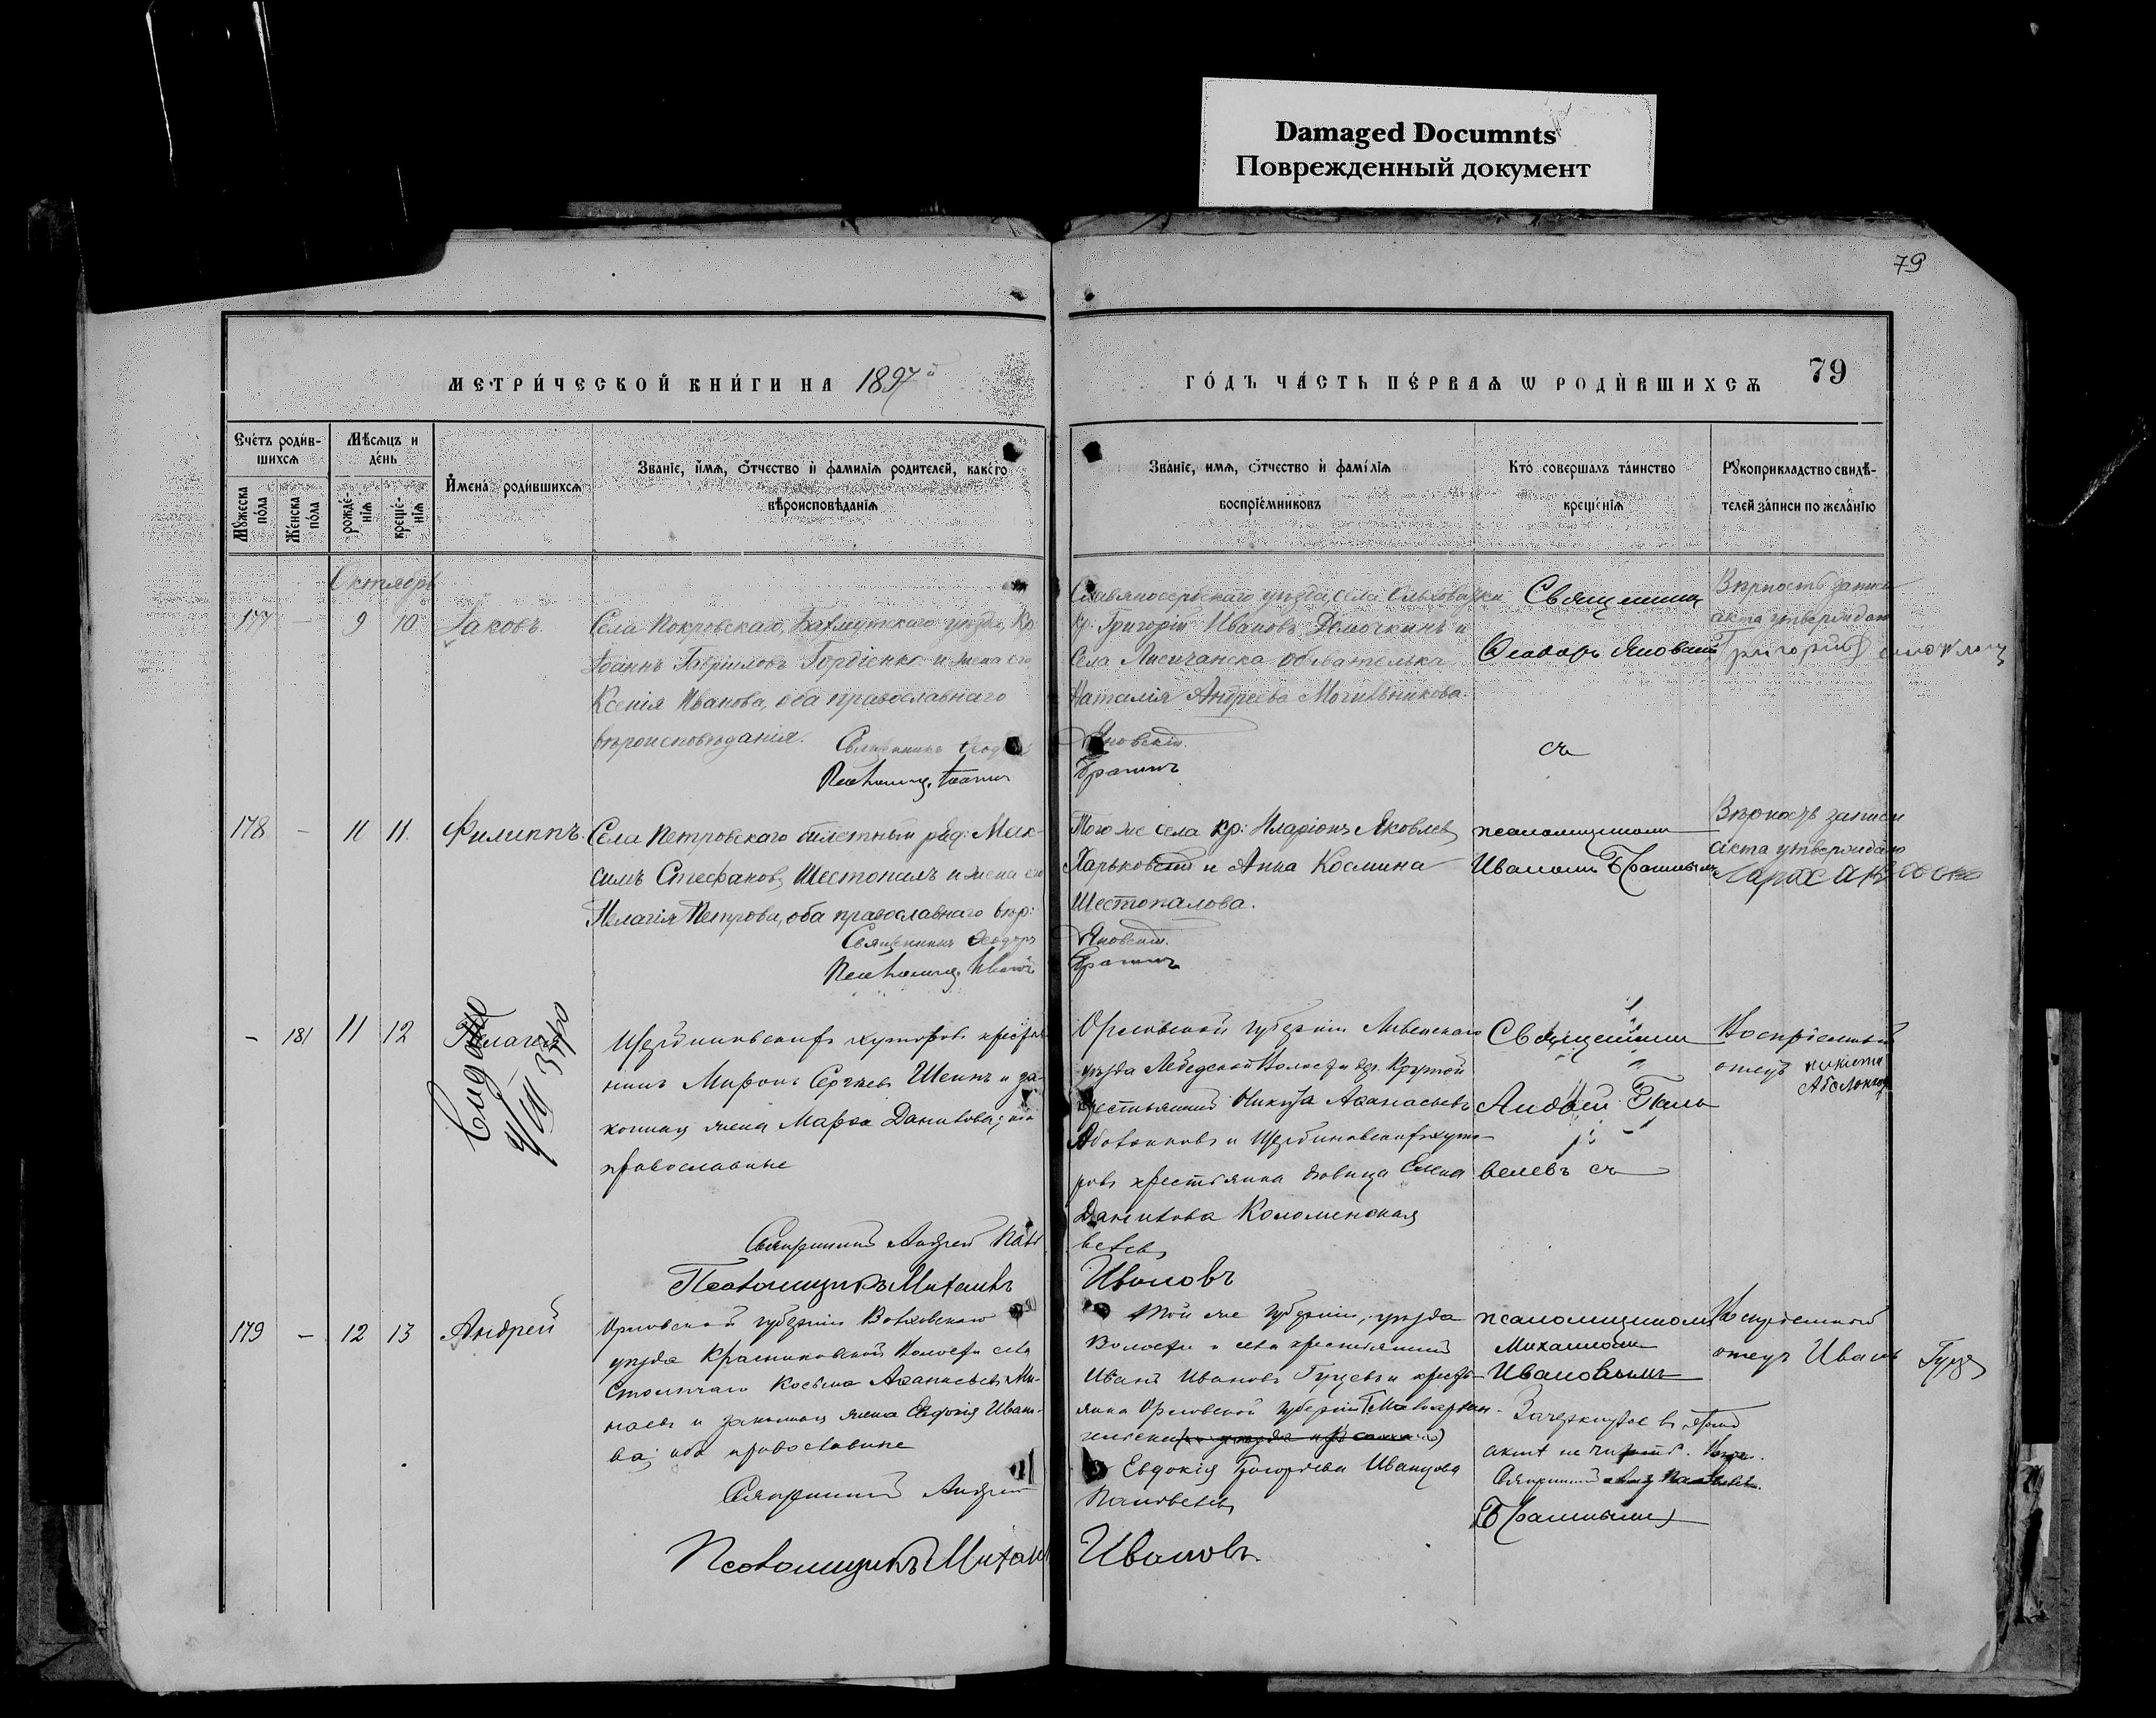 Damaged Documnts
Поврежденный документ
79
МЕТРИ́ЧЕСКОЙ КНИ́ГИ НА 1897й
ГО́ДЪ ЧА́СТЬ ПЕ́РВАѦ Ѡ РОДИ́ВШИХСѦ 79
Сче́тъ роди́в-
шихсѧ
Мꙋ́жеска
по́ла
Же́нска
по́ла
Мѣ́сѧцъ и
де́нь
рожде́-
нїѧ
креще́-
нїѧ
И҆мена̀ роди́вшихсѧ
Зва́нїе, и҆́мѧ, о҆́тчество и҆ фами́лїѧ роди́телей, како́го
вѣроисповѣ́данїѧ
Зва́нїе, и҆́мѧ, о҆́тчество и҆ фамі́лїѧ
воспрїе́мниковъ
Кто̀ соверша́лъ та́инство
креще́нїѧ
Рꙋкоприкла́дство свидѣ́-
телей за́писи по жела́нїю
Октябрь
177 — 9 10 Іаковъ.
Села Покровскаго, Бахмутскаго уѣзда, кр
Іоаннъ Гавріиловъ Гордіенко и жена его
Ксенія Иванова, оба православнаго
вѣроисповѣданія.
Священникъ Ѳеодоръ
Псаломщ. Іоаннъ
Славяносербскаго уѣзда, села Ольховатки
кр. Григорій Ивановъ Демочкинъ и
Села Лисичанска обывателька
Наталія Андреева Могильникова.
Яновскій.
Братинъ
Священник
Ѳеодоръ Яновскій
съ
Вѣрность записи
акта утверждаю
Григорій
178 — 11 11. Филиппъ.
Села Петровскаго билетный ряд: Мак-
симъ Стефановъ Шестопалъ и жена его
Пелагія Петрова, оба православнаго вѣр:
Священникъ Ѳеодоръ
Псаломщ. Иванъ
Того же села кр: Иларіонъ Яковлевъ
Харьковскій и Анна Космина
Шестопалова.
Яновскій.
Братинъ
псаломщикомъ
Иваномъ Братинымъ
Вѣрность записи
акта утверждаю
— 181 11 12 Пелагія
Щербиновскихъ хуторовъ крестья
нинъ Миронъ Сергѣевъ Шеинъ и за-
конная жена Марѳа Данилова; оба
православные
Священникъ Андрей Пав
Псаломщикъ Михаилъ
Орловской губерніи Ливенскаго
уѣзда Лебедской волости дер. Крутой
крестьянинъ Никита Аѳанасьевъ
и Щербиновскихъ хуто-
ровъ крестьянка дѣвица Елена
Данилова Коломенская
велевъ
Ивановъ
Священник
Андрей Пав
велевъ съ
Воспріемный
отецъ Никита
179 — 12 13 Андрей
Орловской губерніи Волховскаго
уѣзда Красниковской волости села
Косьма Аѳанасьевъ Ми-
наевъ и законная жена Евдокія Ивано-
ва; оба православные
Священникъ Андрей
Псаломщикъ Михаил
Той же губерніи, уѣзда
Волости и села крестьянинъ
Иванъ Ивановъ и кресть-
янка Орловской губерніи Малоархан-
гельскаго
Евдокія Григорьева Иванцова
Павловелевъ
Ивановъ.
псаломщикомъ
Михаиломъ
Ивановымъ
Зачеркнутое въ этомъ
актѣ не читать.
Священникъ
Воспріемный
отецъ Иванъ